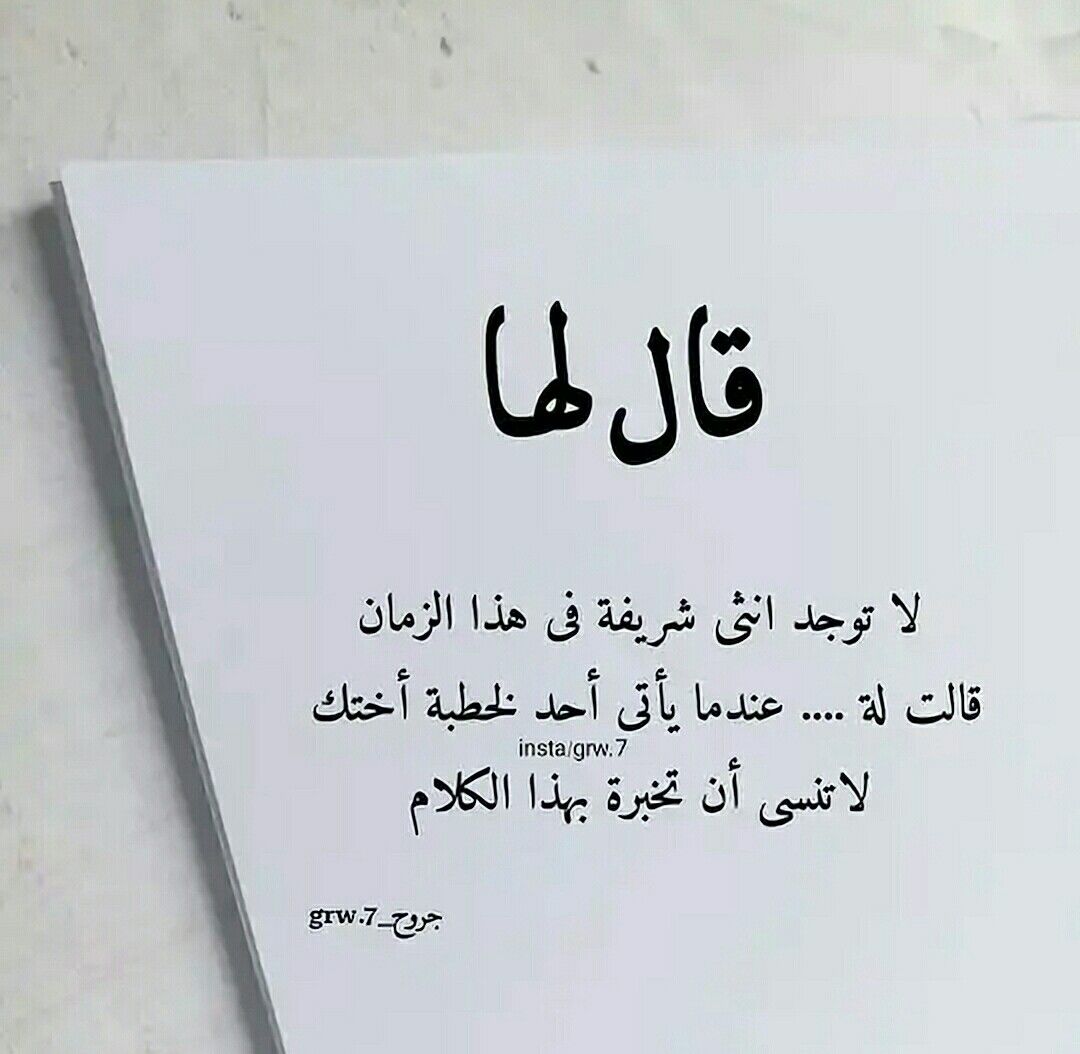 قال لها
لا توجد انثى شريفة فى هذا الزمان
قالت لة .... عندما يأتى أحد لخطبة أختك
insta/grw.7
لاتنسى أن تخبرة بهذا الكلام
جروح_grw.7